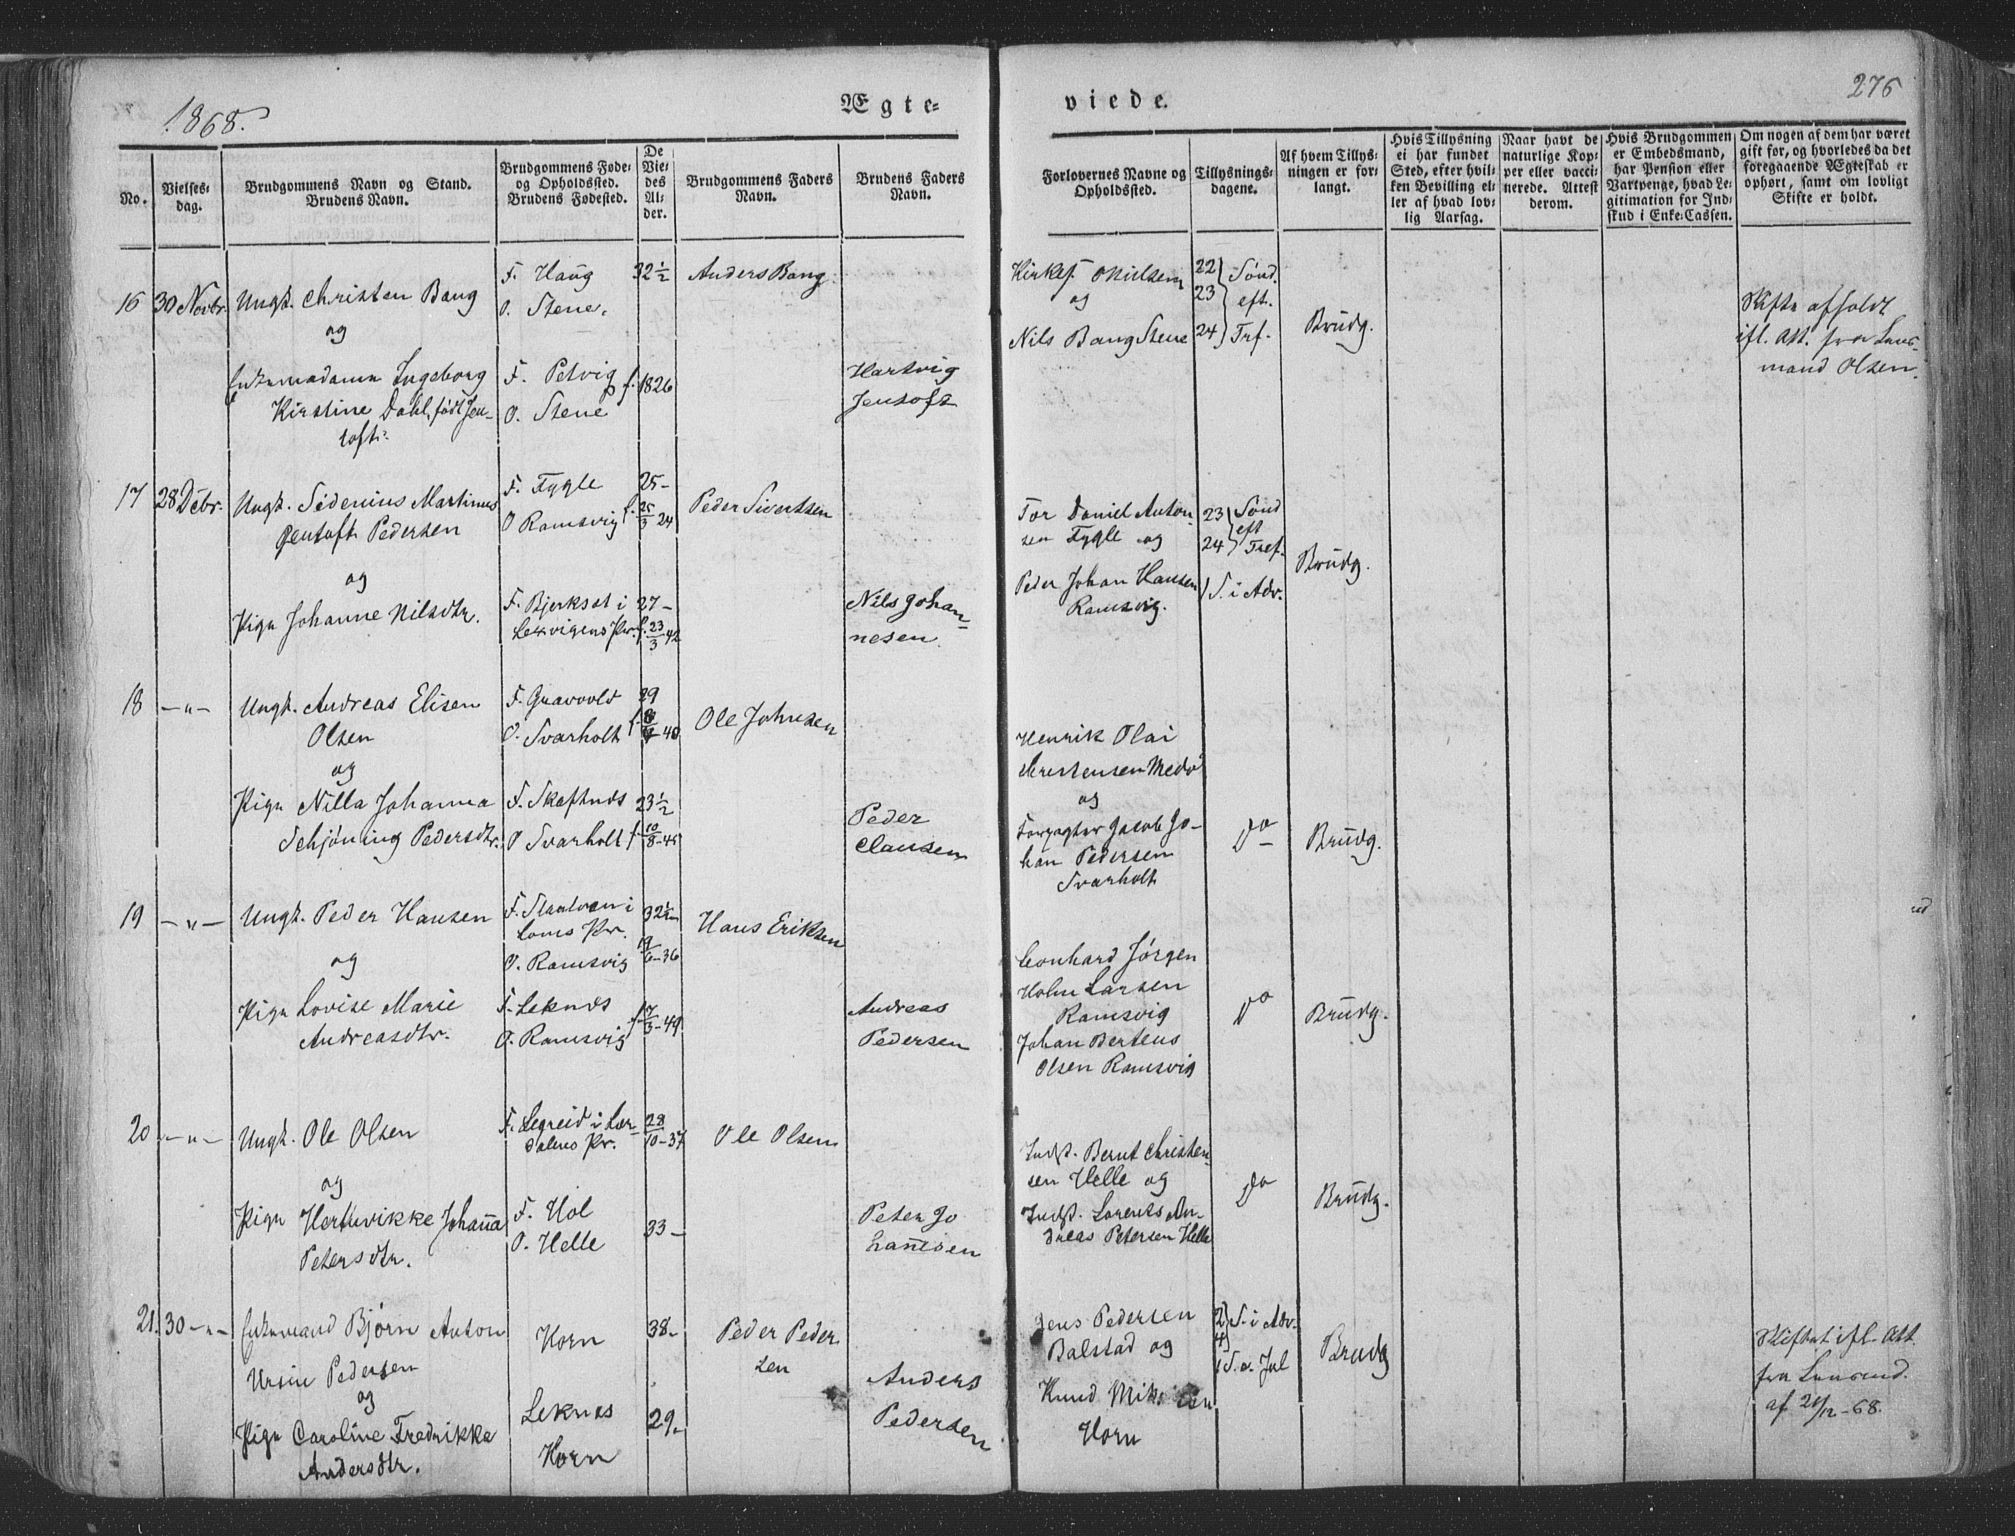 1868.
Ægte=
viede.
276
No.
Vielses=
dag.
Brudgommens Navn og Stand.
Brudens Navn.
Brudgommens Føde=
og Opholdssted.
Brudens Fødested.
De
Vie=
des
Al=
der.
Brudgommens Faders
Navn.
Brudens Faders
Navn.
Forlovernes Navne og
Opholdssted.
Tillysnings=
dagene.
Af hvem Tillys=
ningen er for=
langt.
Hvis Tillysning
ei har fundet
Sted, efter hvil=
ken Bevilling el=
ler af hvad lov=
lig Aarsag.
Naar havt de
naturlige Kop=
per eller vacci=
nerede. Attest
derom.
Hvis Brudgommen
er Embedsmand,
har Pension eller
Vartpenge, hvad Le=
gitimation for Ind=
skud i Enke=Cassen.
Om nogen af dem har været
gift før, og hvorledes da det
foregaaende Ægteskab er
ophørt, samt om lovligt
Skifte er holdt.
16 30 Novbr. Ungk. Christen Bang
og
Enkemadame Ingeborg
Kirstine Dahl, født Jen-
toft.
F. Haug
O. Stene.
F. Petvig
O. Stene
32 1/2
f. 1826
Anders Bang
Hartvig
Jentoft
Kirkes. Nielsen
og
Nils Bang Stene
22
23
24
Sønd.
eft.
Trf.
Brudg.
Skifte afholdt
ifl. Att. fra Lens-
mand Olsen.
17 28 Decbr. Ungk. Sidenius Martinus
Jentoft Pedersen
og
Pige Johanne Nilsdtr.
F. Fygle
O Ramsvig
F. Bjerkset i
Lexvigens Pr.
25-
f. 25/3 24
27-
f. 23/3 42
Peder Sivertsen
Nils Johan-
nesen.
Tor Daniel Anton-
sen Fygle og
Peder Johan Hansen
Ramsvig.
23
24
Sønd
eft
Tref.
1 S. i Adv.
Brudg.
18 -"- Ungk. Andreas Elisen
Olsen
og
Pige Nilla Johanna
Schjøning Pedersdtr.
F. Gravvold
O. Svarholt
F. Skaftnes
O Svarholt
29
40
23 1/2
f. 10/8-45
Ole Johnsen
Peder
Clausen
Henrik Olai
Christensen Medø
og
Forpagter Jacob Jo-
han Pedersen
Svarholt
Do
Brudg.
19 -"- Ungk. Peder Hansen
og
Pige Lovise Marie
Andreasdtr.
Loms Pr.
O. Ramsvig
F. Leknes
O. Ramsvig
32 1/2
19/6-36
f. 7/3-49
Hans Eriksen
Andreas
Pedersen
Leonhard Jørgen
Holm Larsen
Ramsvig
Johan Berteus
Olsen Ramsvig
Do
Brudg.
20 -"- Ungk. Ole Olsen
og
Pige Hertuvikke Johanna
Petersdtr.
F. Legreid i Lær-
dalens Pr.
F. Hol
O. Helle
28/10-37
33-
Ole Olsen
Peter Jo
hannsen
Indst. Bernt Christen-
sen Helle og
Indst. Lorents An-
dreas Petersen Helle
Do
Brudg.
21. 30 -"- Enkemand Bjørn Anton
Ursin Pedersen
og
Pige Caroline Fredrikke
Andersdtr.
Horn
Leknes
Horn
38-
29-
Peder Peder
sen
Anders
Pedersen
Jens Pedersen
Balstad og
Knud
Horn
2
4
S. i Adv.
1 S. e. Jul
Brudg
Skiftet ifl. Att.
fra Lensmd.
af 21/12-68.